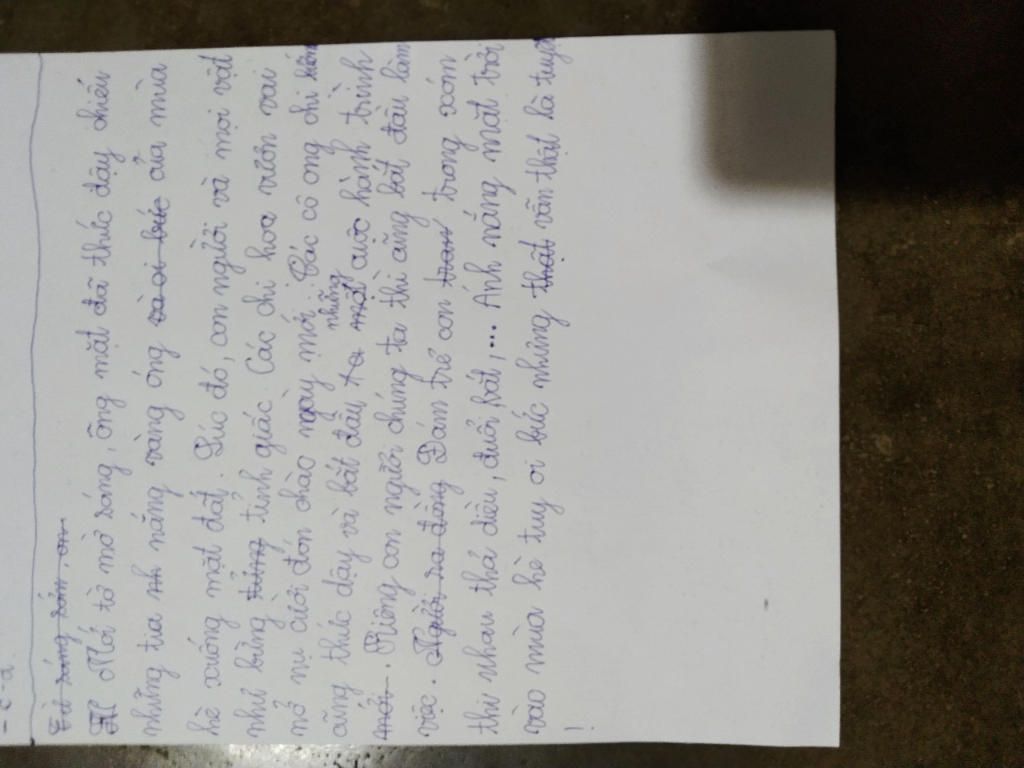 - c - a
Từ sáng sớm, ôn
Mới tờ mờ sáng, ông mặt đã thức dậy chiếu
những tia nh nắng vàng óng và oi bức của mùa
hè xuống mặt đất. Lúc đó, con người và mọi vật
như bừng tỉnh giác. Các chi hoa vươn vai
nở nụ cười đón chào ngày mới. Các cô ong chi
cũng thức dậy và bắt đầy những một cuộc hành trình
mới. Riêng con người chúng ta thì cũng bắt đầu làm
việc. Người ra đồng Đám trẻ con trong xóm
thi nhau thả diều, đuổi bắt,... Ánh nắng mặt trời
vào mùa hè tuy oi bức nhưng thật vẫn thật là tuyệt
!